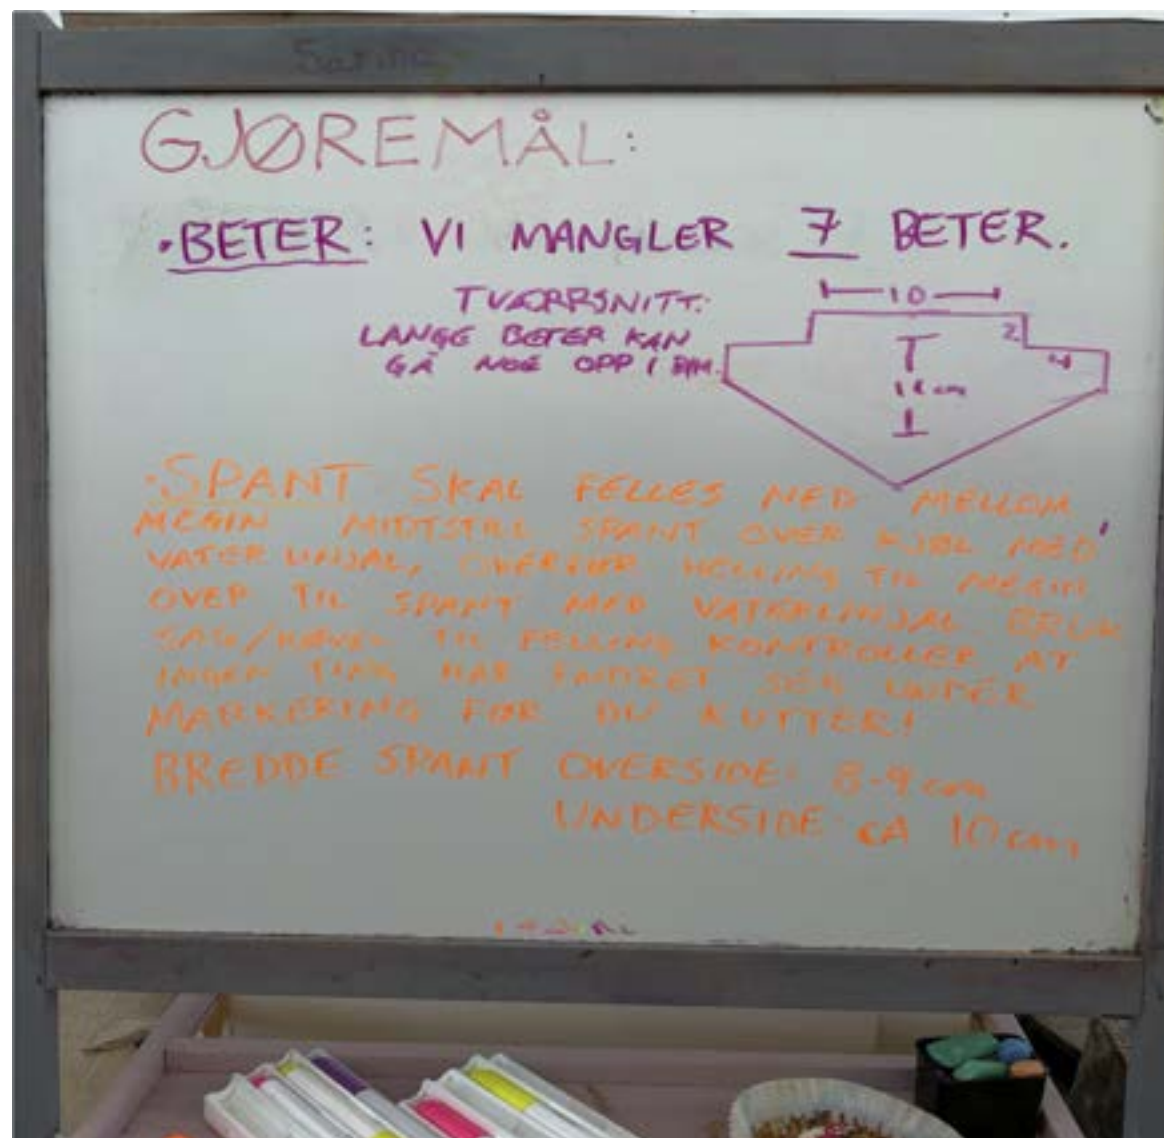 GJØREMÅL:
• BETER: VI MANGLER 7 BETER.
TVÆRRSNITT:
LANGE BETER KAN
GÅ NOE OPP I
10
2
4
cm
• SPANT SKAL FELLES NED MELLOM
MEGIN MIDTSTILL SPANT OVER KJØL MED
VATERLINJAL, OVERFØR HELLING TIL MEGIN
OVER TIL SPANT MED VATERLINJAL. BRUK
SAG/HØVEL TIL FELLING KONTROLLER AT
INGEN TING HAR ENDRET SEG UNDER
MARKERING FØR DU KUTTER!
BREDDE SPANT OVERSIDE: 8-9 cm
UNDERSIDE: CA 10 cm